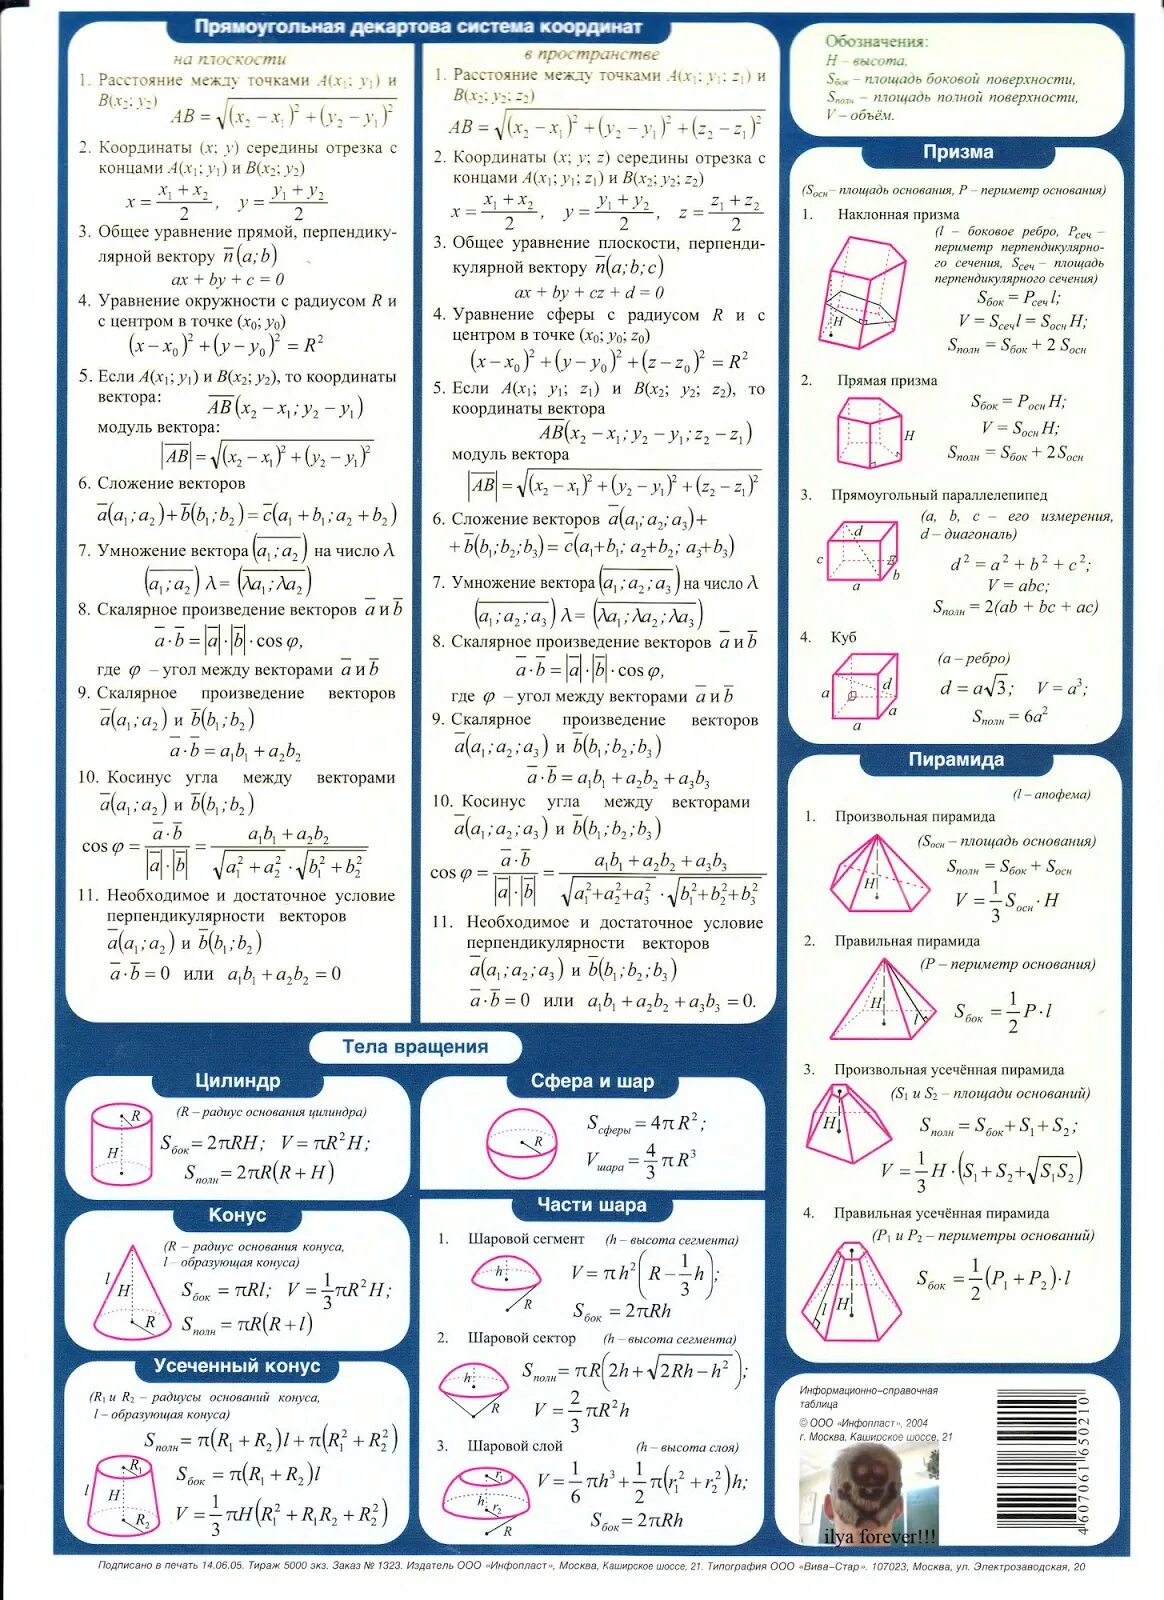 Прямоугольная декартова система координат
на плоскости
1. Расстояние между точками A(x₁; y₁) и
B(x₂; y₂)
AB = √((x₂ − x₁)² + (y₂ − y₁)²)
2. Координаты (x; y) середины отрезка с
концами A(x₁; y₁) и B(x₂; y₂)
x = (x₁ + x₂)/2, y = (y₁ + y₂)/2
3. Общее уравнение прямой, перпендику-
лярной вектору n̅(a; b)
ax + by + c = 0
4. Уравнение окружности с радиусом R и
с центром в точке (x₀; y₀)
(x − x₀)² + (y − y₀)² = R²
5. Если A(x₁; y₁) и B(x₂; y₂), то координаты
вектора:
A̅B̅(x₂ − x₁; y₂ − y₁)
модуль вектора:
|A̅B̅| = √((x₂ − x₁)² + (y₂ − y₁)²)
6. Сложение векторов
a̅(a₁; a₂) + b̅(b₁; b₂) = c̅(a₁ + b₁; a₂ + b₂)
7. Умножение вектора (a₁; a₂) на число λ
(a₁; a₂) λ = (λa₁; λa₂)
8. Скалярное произведение векторов a̅ и b̅
a̅ · b̅ = |a̅| · |b̅| · cos φ,
где φ – угол между векторами a̅ и b̅
9. Скалярное произведение векторов
a̅(a₁; a₂) и b̅(b₁; b₂)
a̅ · b̅ = a₁b₁ + a₂b₂
10. Косинус угла между векторами
a̅(a₁; a₂) и b̅(b₁; b₂)
cos φ = (a̅ · b̅)/(|a̅| · |b̅|) = (a₁b₁ + a₂b₂)/(√(a₁² + a₂²) · √(b₁² + b₂²))
11. Необходимое и достаточное условие
перпендикулярности векторов
a̅(a₁; a₂) и b̅(b₁; b₂)
a̅ · b̅ = 0 или a₁b₁ + a₂b₂ = 0
в пространстве
1. Расстояние между точками A(x₁; y₁; z₁) и
B(x₂; y₂; z₂)
AB = √((x₂ − x₁)² + (y₂ − y₁)² + (z₂ − z₁)²)
2. Координаты (x; y; z) середины отрезка с
концами A(x₁; y₁; z₁) и B(x₂; y₂; z₂)
x = (x₁ + x₂)/2, y = (y₁ + y₂)/2, z = (z₁ + z₂)/2
3. Общее уравнение плоскости, перпенди-
кулярной вектору n̅(a; b; c)
ax + by + cz + d = 0
4. Уравнение сферы с радиусом R и с
центром в точке (x₀; y₀; z₀)
(x − x₀)² + (y − y₀)² + (z − z₀)² = R²
5. Если A(x₁; y₁; z₁) и B(x₂; y₂; z₂), то
координаты вектора
A̅B̅(x₂ − x₁; y₂ − y₁; z₂ − z₁)
модуль вектора
|A̅B̅| = √((x₂ − x₁)² + (y₂ − y₁)² + (z₂ − z₁)²)
6. Сложение векторов a̅(a₁; a₂; a₃) +
+ b̅(b₁; b₂; b₃) = c̅(a₁+b₁; a₂+b₂; a₃+b₃)
7. Умножение вектора (a₁; a₂; a₃) на число λ
(a₁; a₂; a₃) λ = (λa₁; λa₂; λa₃)
8. Скалярное произведение векторов a̅ и b̅
a̅ · b̅ = |a̅| · |b̅| · cos φ,
где φ – угол между векторами a̅ и b̅
9. Скалярное произведение векторов
a̅(a₁; a₂; a₃) и b̅(b₁; b₂; b₃)
a̅ · b̅ = a₁b₁ + a₂b₂ + a₃b₃
10. Косинус угла между векторами
a̅(a₁; a₂; a₃) и b̅(b₁; b₂; b₃)
cos φ = (a̅ · b̅)/(|a̅| · |b̅|) = (a₁b₁ + a₂b₂ + a₃b₃)/(√(a₁²+a₂²+a₃²) · √(b₁²+b₂²+b₃²))
11. Необходимое и достаточное условие
перпендикулярности векторов
a̅(a₁; a₂; a₃) и b̅(b₁; b₂; b₃)
a̅ · b̅ = 0 или a₁b₁ + a₂b₂ + a₃b₃ = 0.
Обозначения:
H – высота,
Sбок – площадь боковой поверхности,
Sполн – площадь полной поверхности,
V – объём.
Призма
(Sосн – площадь основания, P – периметр основания)
1. Наклонная призма
(l – боковое ребро, Pсеч –
периметр перпендикулярно-
го сечения, Sсеч – площадь
перпендикулярного сечения)
Sбок = Pсеч l;
V = Sсеч l = Sосн H;
Sполн = Sбок + 2 Sосн
H
2. Прямая призма
Sбок = Pосн H;
V = Sосн H;
Sполн = Sбок + 2Sосн
H
3. Прямоугольный параллелепипед
(a, b, c – его измерения,
d – диагональ)
d² = a² + b² + c²;
V = abc;
Sполн = 2(ab + bc + ac)
d
c
b
a
4. Куб
(a – ребро)
d = a√3; V = a³;
Sполн = 6a²
a
d
a
a
Пирамида
(l – апофема)
1. Произвольная пирамида
(Sосн – площадь основания)
Sполн = Sбок + Sосн
V = 1/3 Sосн · H
H
2. Правильная пирамида
(P – периметр основания)
Sбок = 1/2 P · l
H
l
3. Произвольная усечённая пирамида
(S₁ и S₂ – площади оснований)
Sполн = Sбок + S₁ + S₂;
V = 1/3 H · (S₁ + S₂ + √(S₁S₂))
H
4. Правильная усечённая пирамида
(P₁ и P₂ – периметры оснований)
Sбок = 1/2 (P₁ + P₂) · l
l
H
Тела вращения
Цилиндр
(R – радиус основания цилиндра)
Sбок = 2πRH; V = πR²H;
Sполн = 2πR(R + H)
R
H
Конус
(R – радиус основания конуса,
l – образующая конуса)
Sбок = πRl; V = 1/3 πR²H;
Sполн = πR(R + l)
l
H
R
Усеченный конус
(R₁ и R₂ – радиусы оснований конуса,
l – образующая конуса)
Sполн = π(R₁ + R₂)l + π(R₁² + R₂²)
Sбок = π(R₁ + R₂)l
V = 1/3 πH(R₁² + R₁R₂ + R₂²)
R₁
l
H
R₂
Сфера и шар
Sсферы = 4πR²;
Vшара = 4/3 πR³
R
Части шара
1. Шаровой сегмент (h – высота сегмента)
V = πh²(R − 1/3 h);
Sбок = 2πRh
h
R
2. Шаровой сектор (h – высота сегмента)
Sполн = πR(2h + √(2Rh − h²));
V = 2/3 πR²h
h
R
3. Шаровой слой (h – высота слоя)
V = 1/6 πh³ + 1/2 π(r₁² + r₂²)h;
Sбок = 2πRh
r₁
h
r₂
R
Информационно–справочная
таблица
© ООО «Инфопласт», 2004
г. Москва, Каширское шоссе, 21
ilya forever!!!
4607061650210
Подписано в печать 14.06.05. Тираж 5000 экз. Заказ № 1323. Издатель ООО «Инфопласт», Москва, Каширское шоссе, 21. Типография ООО «Вива–Стар». 107023, Москва, ул. Электрозаводская, 20